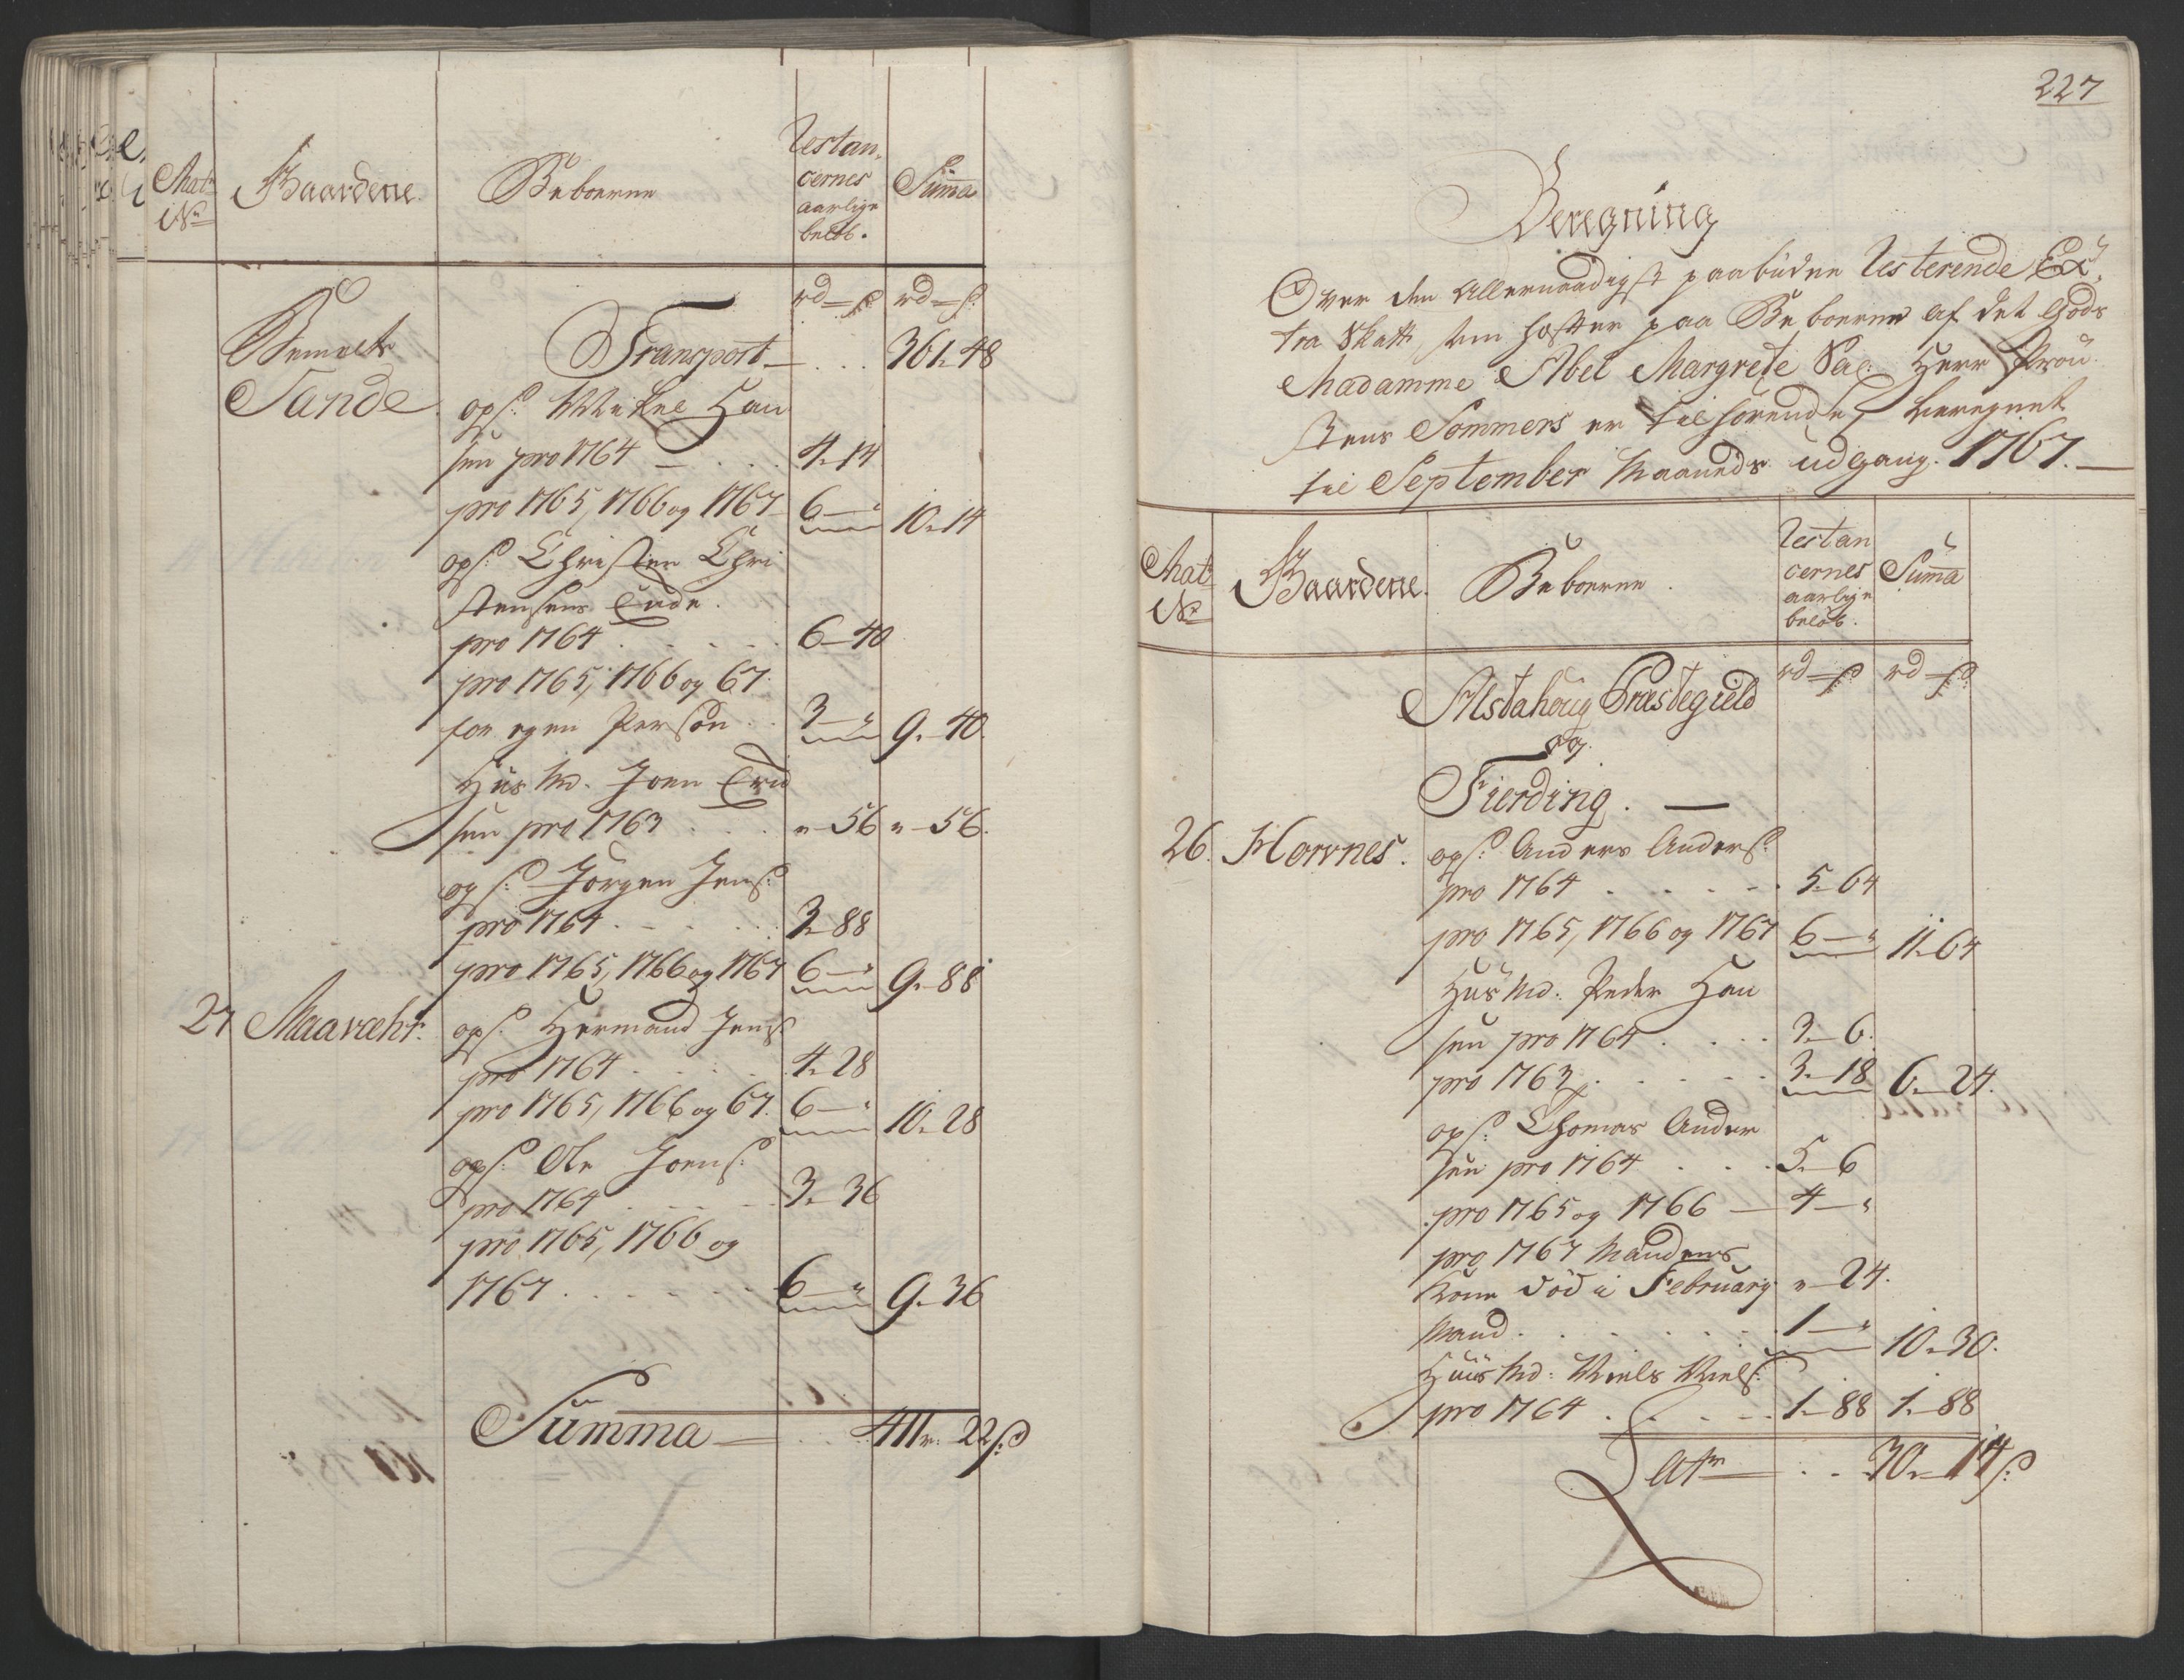 Mat:
No
Gaardene.
Beboerne
Restan-
cernes
aarlige
beløb.
Summa
rd – s:
rd – s:
Bemelte
Sande.
Transport – . . . 361 – 48
ops: Mikel Han
sen pro 1764 – . . . 4 – 14
pro 1765, 1766 og 1767 6 – " 10 – 14
ops: Christen Chri
stensens Enke.
pro 1764 . . . . . 6 – 40
pro 1765, 1766 og 67.
for egen Person . . 3 – " 9 – 40.
Huusmd. Joen
sen pro 1763 . . . . " – 56 " – 56.
ops: Jørgen Jens:
pro 1764 . . . . . 3 – 88
pro 1765, 1766 og 1767 6 – " 9 – 88
27 Maavæht. ops: Hermand Jens:
pro 1764 . . . . . 4 – 28
pro 1765, 1766 og 67. 6 – " 10 – 28
ops: Ole Joens:
pro 1764 . . . . . 3 – 36
pro 1765, 1766 og
1767 . . . . . . 6 – " 9 – 36
Summa – . . . 411 r. 22 s:
227
Beregning
Over den Allernaadigst paabudne Resterende Ex-
tra Skatt, som hefter paa Beboerne af det Gods
Madamme Abel Margrete Sal: Herr Prou-
stens Sommers er tilhørende, beregnet
til September Maaneds udgang. 1767. –
Mat:
No
Gaardene.
Beboerne.
Restan
cernes
aarlige
beløb.
Summa
rd – s:
rd – s:
Alstahoug Præstegield
og
Fierding. –
26. Horvnes. ops: Anders Anders:
pro 1764 . . . . . 5 – 64
pro 1765, 1766 og 1767 6 – " 11 – 64
Huusmd: Peder Han
sen pro 1764 . . . . 3 – 6.
pro 1763 . . . . . 3 – 18 6 – 24.
ops: Thomas Ander
sen pro 1764 . . . 5 – 6
pro 1765 og 1766 – 4 – "
pro 1767 Mandens
Kone død i February " – 24.
Mand . . . . . . 1 – " 10 – 30.
Huusmd: Niels Niels:
pro 1764 . . . . . 1 – 88 1 – 88
Latr – . . . 30 – 14 s: